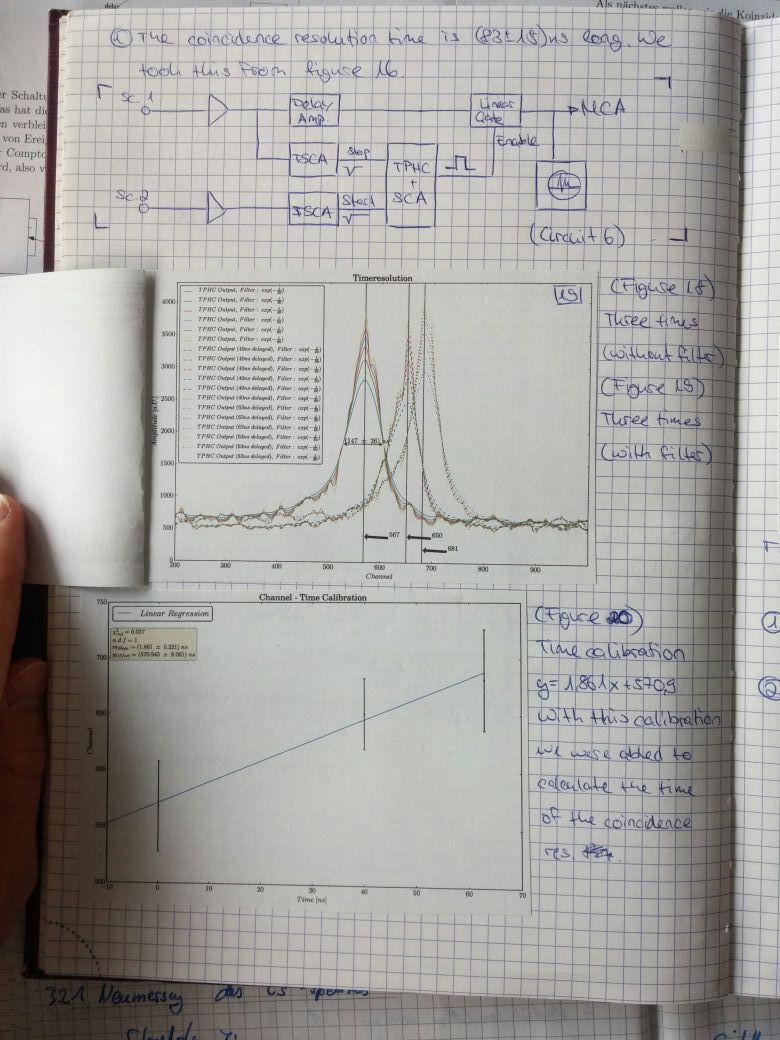 Als nächstes
die Koinzid
delay
ⓒ The coincidence resolution time is (83±15)ns long. We
took this from figure 16.
er Schaltu
as hat die
en verblei
von Erei
Compto
rd, also v
Sc. 1
Delay
Amp.
Linear
Gate
MCA
Enable
TSCA
Stop
TPHC
+
SCA
Sc. 2
TSCA
Start
(Circuit 6)
Timeresolution
19
TPHC Output, Filter : exp(-
TPHC Output, Filter : exp(-
TPHC Output, Filter : exp(-
TPHC Output, Filter : exp(-
TPHC Output, Filter : exp(-
TPHC Output, Filter : exp(-
TPHC Output (40ns delayed), Filter : exp(-
TPHC Output (40ns delayed), Filter : exp(-
TPHC Output (40ns delayed), Filter : exp(-
TPHC Output (40ns delayed), Filter : exp(-
TPHC Output (40ns delayed), Filter : exp(-
TPHC Output (40ns delayed), Filter : exp(-
TPHC Output (63ns delayed), Filter : exp(-
TPHC Output (63ns delayed), Filter : exp(-
TPHC Output (63ns delayed), Filter : exp(-
TPHC Output (63ns delayed), Filter : exp(-
TPHC Output (63ns delayed), Filter : exp(-
TPHC Output (63ns delayed), Filter : exp(-
4000
3500
3000
2500
2000
1500
1000
500
0
(147 ± 26) ns
567
650
681
200 300 400 500 600 700 800 900
Channel
(Figure 18)
Three times
(without filter)
(Figure 19)
Three times
(with filter)
Channel - Time Calibration
Linear Regression
= 0.037
n.d.f = 1
= (1.861 ± 0.221) ns
= (570.945 ± 9.061) ns
750
700
650
600
550
500
Channel
-10 0 10 20 30 40 50 60 70
Time [ns]
(Figure 20)
Time calibration
y=1,861x+570,9
With this calibration
we were abled to
calculate the time
of the coincidence
res.
1
2
3.2.1 Neumessung des